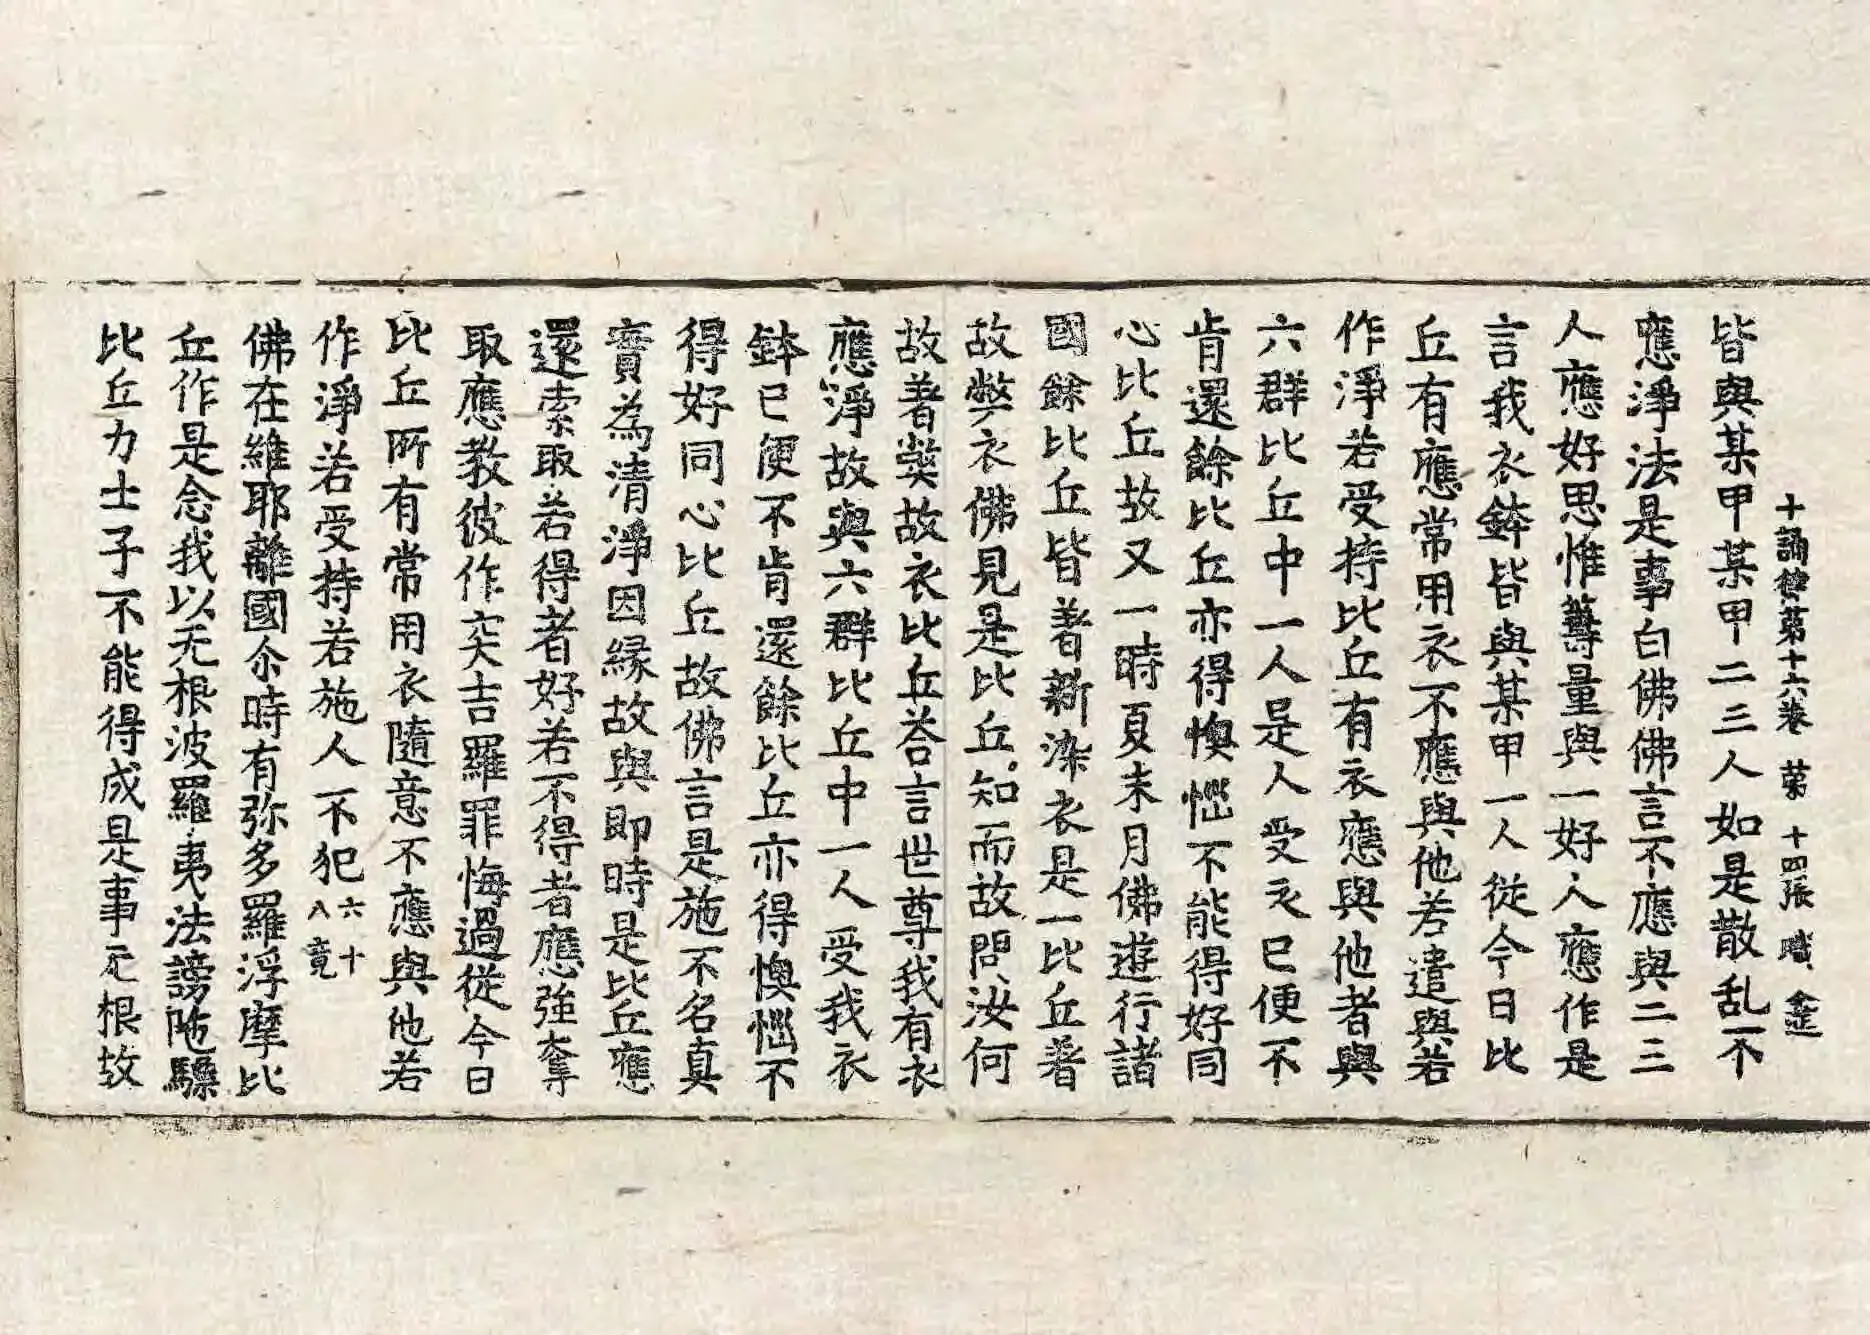 十誦律第十六卷 第十四張 職
皆與某甲某甲二三人如是散乱不
應淨法是事白佛佛言不應與二三
人應好思惟籌量與一好人應作是
言我衣鉢皆與某甲一人從今日比
丘有應常用衣不應與他若遣與若
作淨若受持比丘有衣應與他者與
六群比丘中一人是人受衣已便不
肯還餘比丘亦得懊惱不能得好同
心比丘故又一時夏末月佛遊行諸
國餘比丘皆著新染衣是一比丘著
故弊衣佛見是比丘知而故問汝何
故著弊故衣比丘荅言世尊我有衣
應淨故與六群比丘中一人受我衣
鉢已便不肯還餘比丘亦得懊惱不
得好同心比丘故佛言是施不名真
實為清淨因縁故與即時是比丘應
還索取若得者好若不得者應強奪
取應教彼作突吉羅罪悔過從今日
比丘所有常用衣隨意不應與他若
作淨若受持若施人不犯六十八竟
佛在維耶離國尒時有弥多羅浮摩比
丘作是念我以无根波羅夷法謗陁驃
比丘力士子不能得成是事无根故